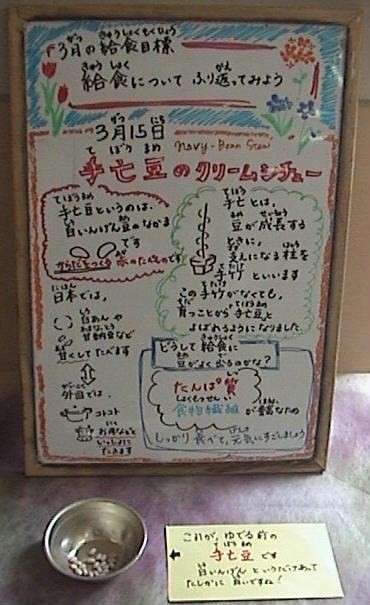 3月の給食目標
給食について ふり返ってみよう
3月15日
Navy-Bean Stew
手亡豆のクリームシチュー
手亡豆というのは、
白いんげん豆のなかま
です
からだをつくる 赤のたべものです!
日本では、
白あんや
甘納豆など
甘くしてたべます
外国では、
コトコト
お肉などと
いっしょに
たきます
手亡とは、
豆が成長する
ときに、
支えになる柱を
手竹といいます
この手竹がなくても、
育つことから"手亡豆"と
よばれるようになりました
どうして給食に
豆がよく出るのかな?
たんぱく質
食物繊維 が豊富なため
しっかり食べて、元気にすごしましょう
これが、ゆでる前の
手亡豆です
白いんげん というだけあって
たしかに 白いですね!